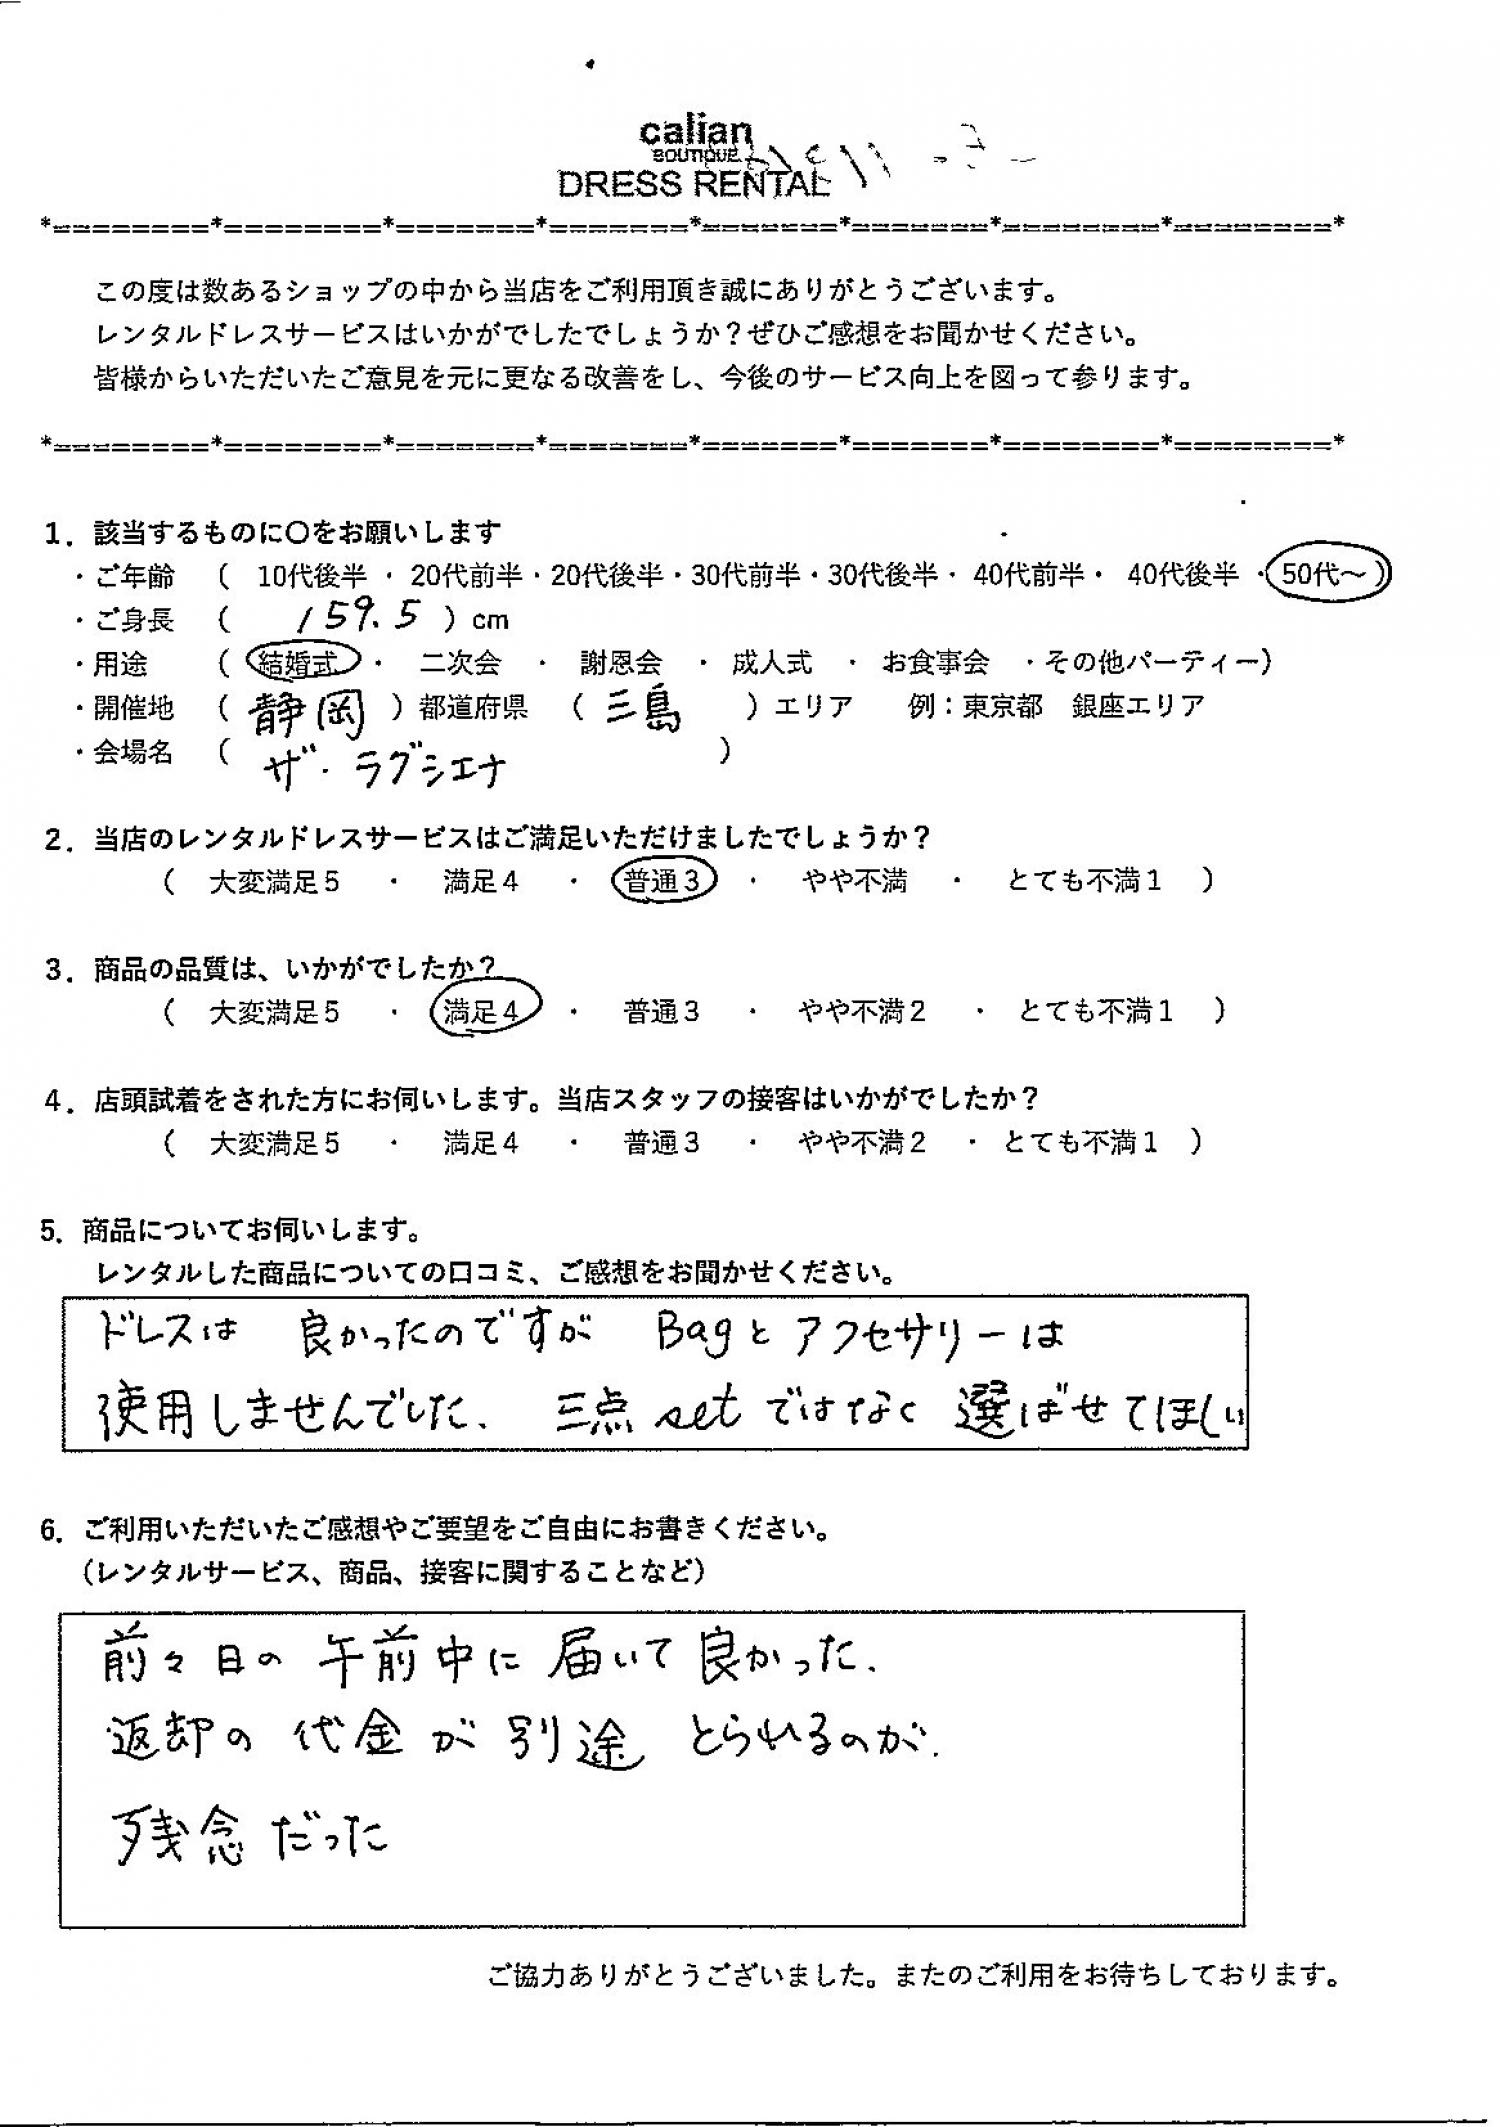 calian
BOUTIQUE
DRESS RENTAL
*========*========*=======*=======*=======*=======*========*========*
この度は数あるショップの中から当店をご利用頂き誠にありがとうございます。
レンタルドレスサービスはいかがでしたでしょうか？ぜひご感想をお聞かせください。
皆様からいただいたご意見を元に更なる改善をし、今後のサービス向上を図って参ります。
*========*========*=======*=======*=======*=======*========*========*
1．該当するものに〇をお願いします
・ご年齢 （ 10代後半 ・ 20代前半・20代後半・30代前半・30代後半・ 40代前半・ 40代後半 ・50代～）
・ご身長 （ 159.5 ）cm
・用途 （ 結婚式 ・ 二次会 ・ 謝恩会 ・ 成人式 ・ お食事会 ・その他パーティー）
・開催地 （ 静岡 ）都道府県 （ 三島 ）エリア 例：東京都 銀座エリア
・会場名 （ ザ・ラグシエナ ）
2．当店のレンタルドレスサービスはご満足いただけましたでしょうか？
（ 大変満足５ ・ 満足４ ・ 普通３ ・ やや不満 ・ とても不満１ ）
3．商品の品質は、いかがでしたか？
（ 大変満足５ ・ 満足４ ・ 普通３ ・ やや不満２ ・ とても不満１ ）
4．店頭試着をされた方にお伺いします。当店スタッフの接客はいかがでしたか？
（ 大変満足５ ・ 満足４ ・ 普通３ ・ やや不満２ ・ とても不満１ ）
5．商品についてお伺いします。
レンタルした商品についての口コミ、ご感想をお聞かせください。
ドレスは 良かったのですが Bagとアクセサリーは
使用しませんでした. 三点setではなく選ばせてほしい
6．ご利用いただいたご感想やご要望をご自由にお書きください。
（レンタルサービス、商品、接客に関することなど）
前々日の午前中に届いて良かった.
返却の代金が別途とられるのが.
残念だった
ご協力ありがとうございました。またのご利用をお待ちしております。